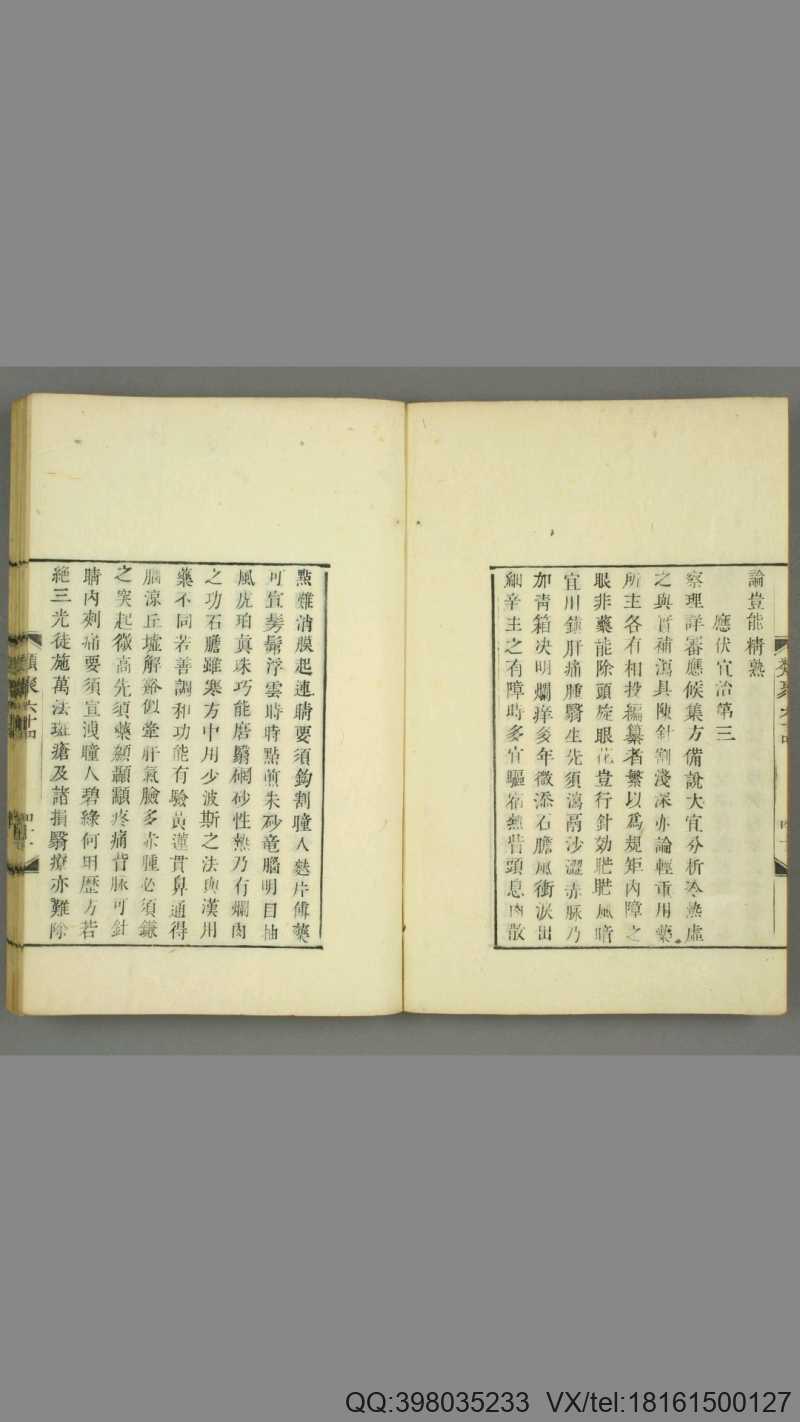 論豈能精熟
應伏宜治第三
察理詳審應候集方備說大宜分析冷熱虛
之與實補瀉具陳針割淺深亦論輕重用藥
所主各有相投編纂者繁以爲規矩內障之
眼非藥能除頭旋眼花豈行針効𥆨𥆨風暗
宜用鎮肝痛腫翳生先須瀉鬲沙澀赤脉乃
加青箱决明爛痒多年微添石膽風衝淚出
細辛主之有障時多宜驅宿熱昔頭息肉散
點難消膜起連睛要須鈎割瞳人麩片傅藥
可宜髣髴浮雲時時點煎朱砂竜腦明目抽
風虎珀真珠巧能磨翳硇砂性熱乃有爛肉
之功石膽雖寒方中用少波斯之法與漢用
藥不同若善調和功能有驗黃蓮貫鼻通得
腦涼丘墟解谿似牽肝氣臉多赤腫必須鎌
之突起微高先須藥顳顬疼痛皆脉可針
睛內刺痛要須宣洩瞳人碧綠何用歷方若
絶三光徒施萬法斑瘡及諸損翳療亦難除
類聚六十四
QQ:398035233 VX/tel:18161500127